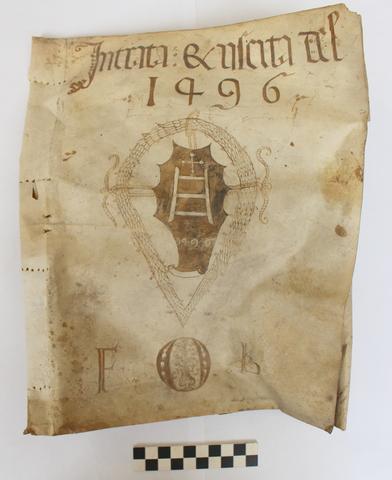 Intrata: & uscita del
1496
F O B